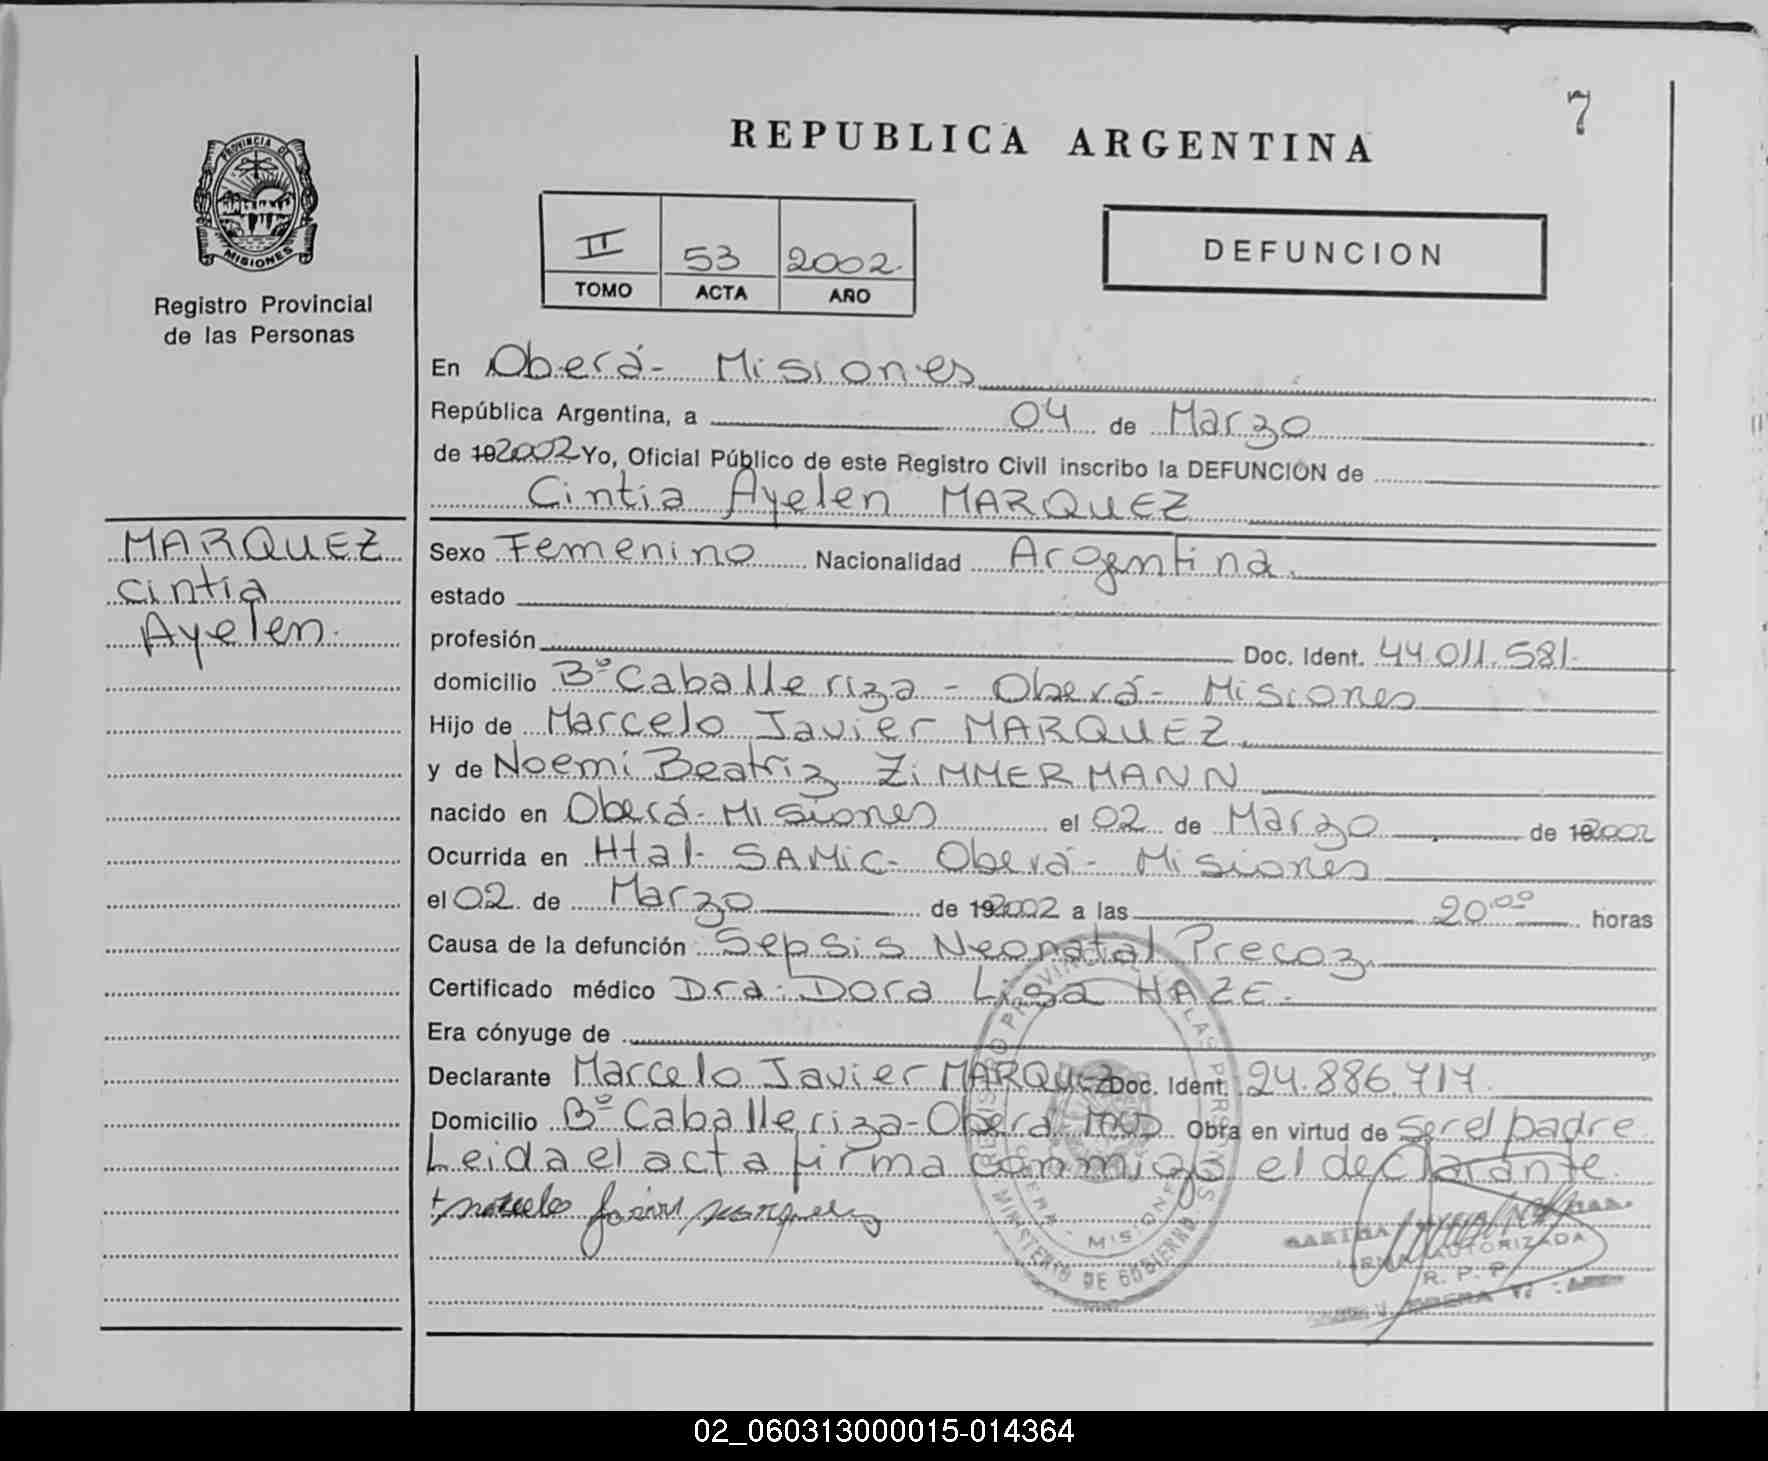 7
REPUBLICA ARGENTINA
PROVINCIA DE
MISIONES
Registro Provincial
de las Personas
II 53 2002.
TOMO ACTA AÑO
DEFUNCION
En Oberá- Misiones
República Argentina, a 04 de Marzo
de 192002 Yo, Oficial Público de este Registro Civil inscribo la DEFUNCION de
Cintia Ayelen MARQUEZ
MARQUEZ
Cintia
Ayelen.
Sexo Femenino Nacionalidad Argentina.
estado
profesión Doc. Ident. 44.011.581.
domicilio Bº Caballeriza - Oberá - Misiones
Hijo de Marcelo Javier MARQUEZ.
y de Noemi Beatriz ZiMMERMANN
nacido en Oberá- Misiones el 02 de Marzo de 192002
Ocurrida en Htal- SAMiC- Oberá- Misiones
el 02 de Marzo de 192002 a las 20.00 horas
Causa de la defunción Sepsis Neonatal Precoz.
Certificado médico Dra. Dora Lisa HAZE.
Era cónyuge de
Declarante Marcelo Javier MARQUEZ Doc. Ident. 24.886.717.
Domicilio Bº Caballeriza-Oberá Obra en virtud de ser el padre.
Leida el acta firma conmigo el declarante.
Marcelo Javier Marquez
REGISTRO PROVINCIAL DE LAS PERSONAS
MISIONES
MINISTERIO DE GOBIERNO
FIRMA AUTORIZADA
R. P. P.
02_060313000015-014364